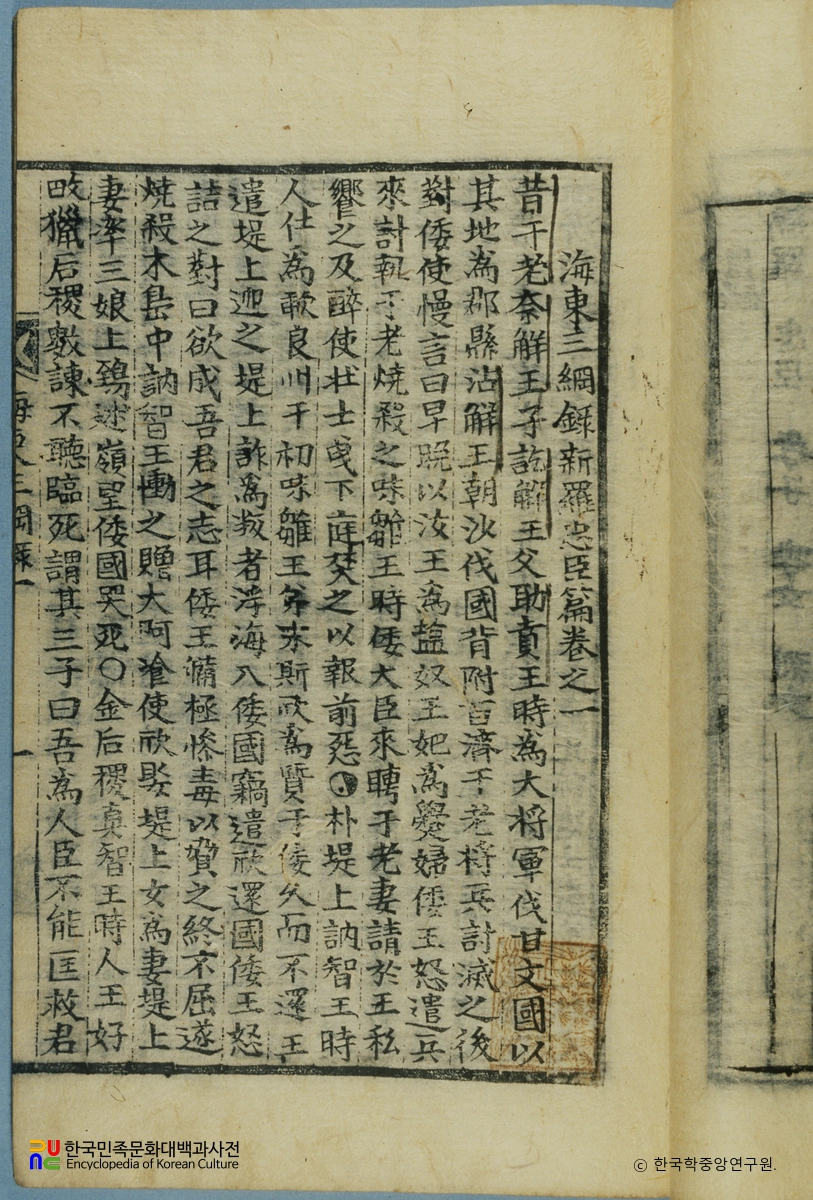 海東三綱錄新羅忠臣篇卷之一
昔于老奈解王子訖解王父助賁王時爲大將軍伐甘文國以
其地爲郡縣沾解王朝沙伐國背附百濟于老將兵討滅之後
對倭使慢言曰早晩以汝王爲鹽奴王妃爲爨婦倭王怒遣兵
來討執于老燒殺之味鄒王時倭大臣來聘于老妻請於王私
饗之及醉使壯士曵下庭焚之以報前怨 朴堤上訥智王時
人仕爲歃良州干初味雛王弟末斯欣爲質于倭久而不還王
遣堤上迎之堤上詐爲叛者浮海入倭國竊遣欣還國倭王怒
詰之對曰欲成吾君之志耳倭王備極慘毒以質之終不屈遂
燒殺木島中訥智王慟之贈大阿飡使欣娶堤上女爲妻堤上
妻率三娘上鵄述嶺望倭國哭死○金后稷眞智王時人王好
畋獵后稷數諫不聽臨死謂其三子曰吾爲人臣不能匡救君
海東三綱錄一
一
한국민족문화대백과사전
Encyclopedia of Korean Culture
© 한국학중앙연구원.